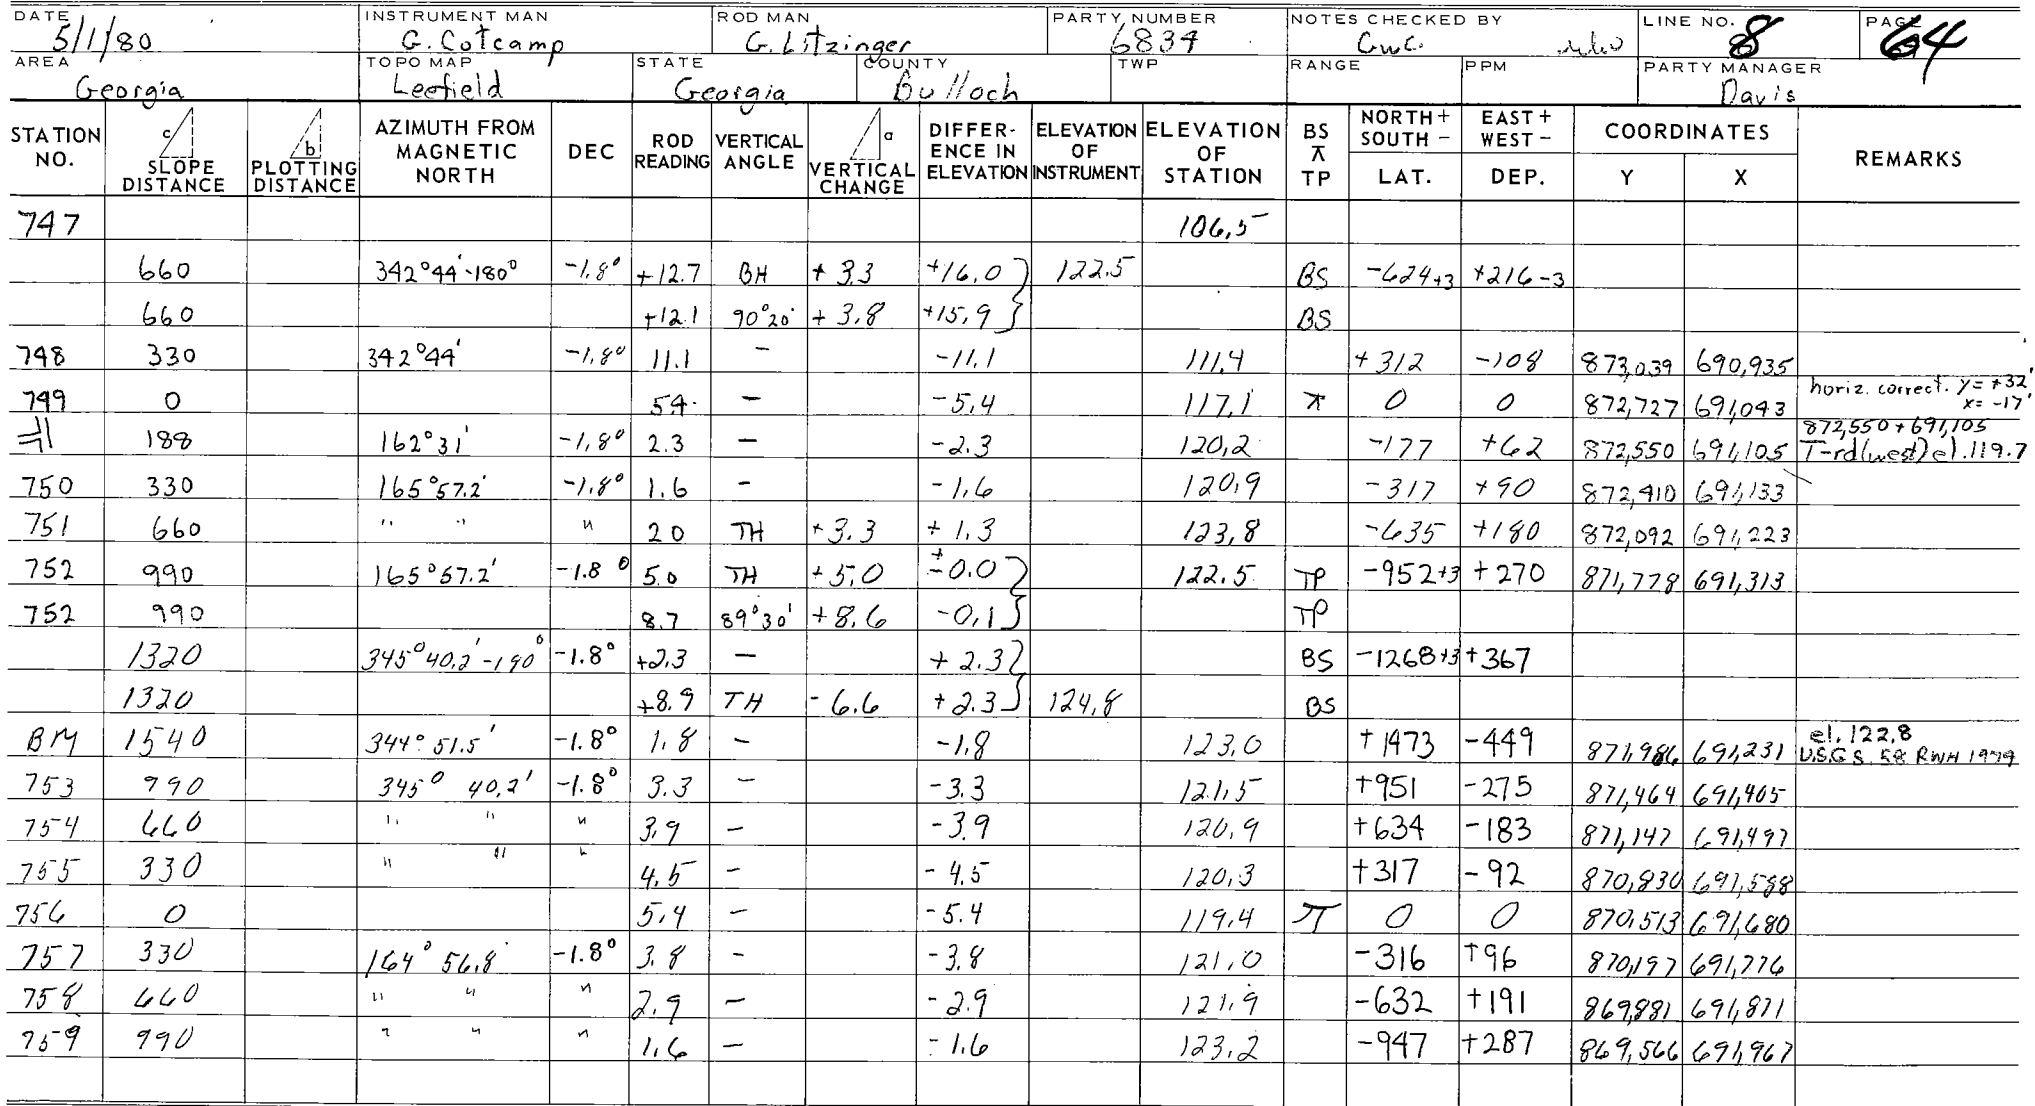 DATE 5/1/80 INSTRUMENT MAN G. Cotcamp ROD MAN G. Litzinger PARTY NUMBER 6834 NOTES CHECKED BY GWC. LINE NO. 8 PAGE 64
AREA Georgia TOPO MAP Leefield STATE Georgia COUNTY Bulloch TWP RANGE PPM PARTY MANAGER Davis
STATION NO. c SLOPE DISTANCE b PLOTTING DISTANCE AZIMUTH FROM MAGNETIC NORTH DEC ROD READING VERTICAL ANGLE a VERTICAL CHANGE DIFFER-ENCE IN ELEVATION ELEVATION OF INSTRUMENT ELEVATION OF STATION BS ⊼ TP NORTH + SOUTH - LAT. EAST + WEST - DEP. COORDINATES Y X REMARKS
747 106.5
660 342°44'-180° -1.8° +12.7 BH +3.3 +16.0 122.5 BS -624+3 +216-3
660 +12.1 90°20' +3.8 +15.9 BS
748 330 342°44' -1.8° 11.1 - -11.1 111.4 +312 -108 873,039 690,935
749 0 5.4 - -5.4 117.1 ⊼ 0 0 872,727 691,043 horiz. correct. y=+32' x=-17'
188 162°31' -1.8° 2.3 - -2.3 120.2 -177 +62 872,550 691,105 872,550+691,105 T-rd(west) el.119.7
750 330 165°57.2' -1.8° 1.6 - -1.6 120.9 -317 +90 872,410 691,133
751 660 " " " 2.0 TH +3.3 +1.3 123.8 -635 +180 872,092 691,223
752 990 165°57.2' -1.8° 5.0 TH +5.0 ±0.0 122.5 TP -952+3 +270 871,778 691,313
752 990 8.7 89°30' +8.6 -0.1 TP
1320 345°40.2'-190° -1.8° +2.3 - +2.3 BS -1268+3 +367
1320 +8.9 TH -6.6 +2.3 124.8 BS
BM 1540 344°51.5' -1.8° 1.8 - -1.8 123.0 +1473 -449 871,986 691,231 el. 122.8 U.S.G.S. 58 RWH 1979
753 990 345° 40.2' -1.8° 3.3 - -3.3 121.5 +951 -275 871,464 691,405
754 660 " " " 3.9 - -3.9 120.9 +634 -183 871,147 691,497
755 330 " " " 4.5 - -4.5 120.3 +317 -92 870,830 691,588
756 0 5.4 - -5.4 119.4 ⊼ 0 0 870,513 691,680
757 330 164° 56.8' -1.8° 3.8 - -3.8 121.0 -316 +96 870,197 691,776
758 660 " " " 2.9 - -2.9 121.9 -632 +191 869,881 691,871
759 990 " " " 1.6 - -1.6 123.2 -947 +287 869,566 691,967